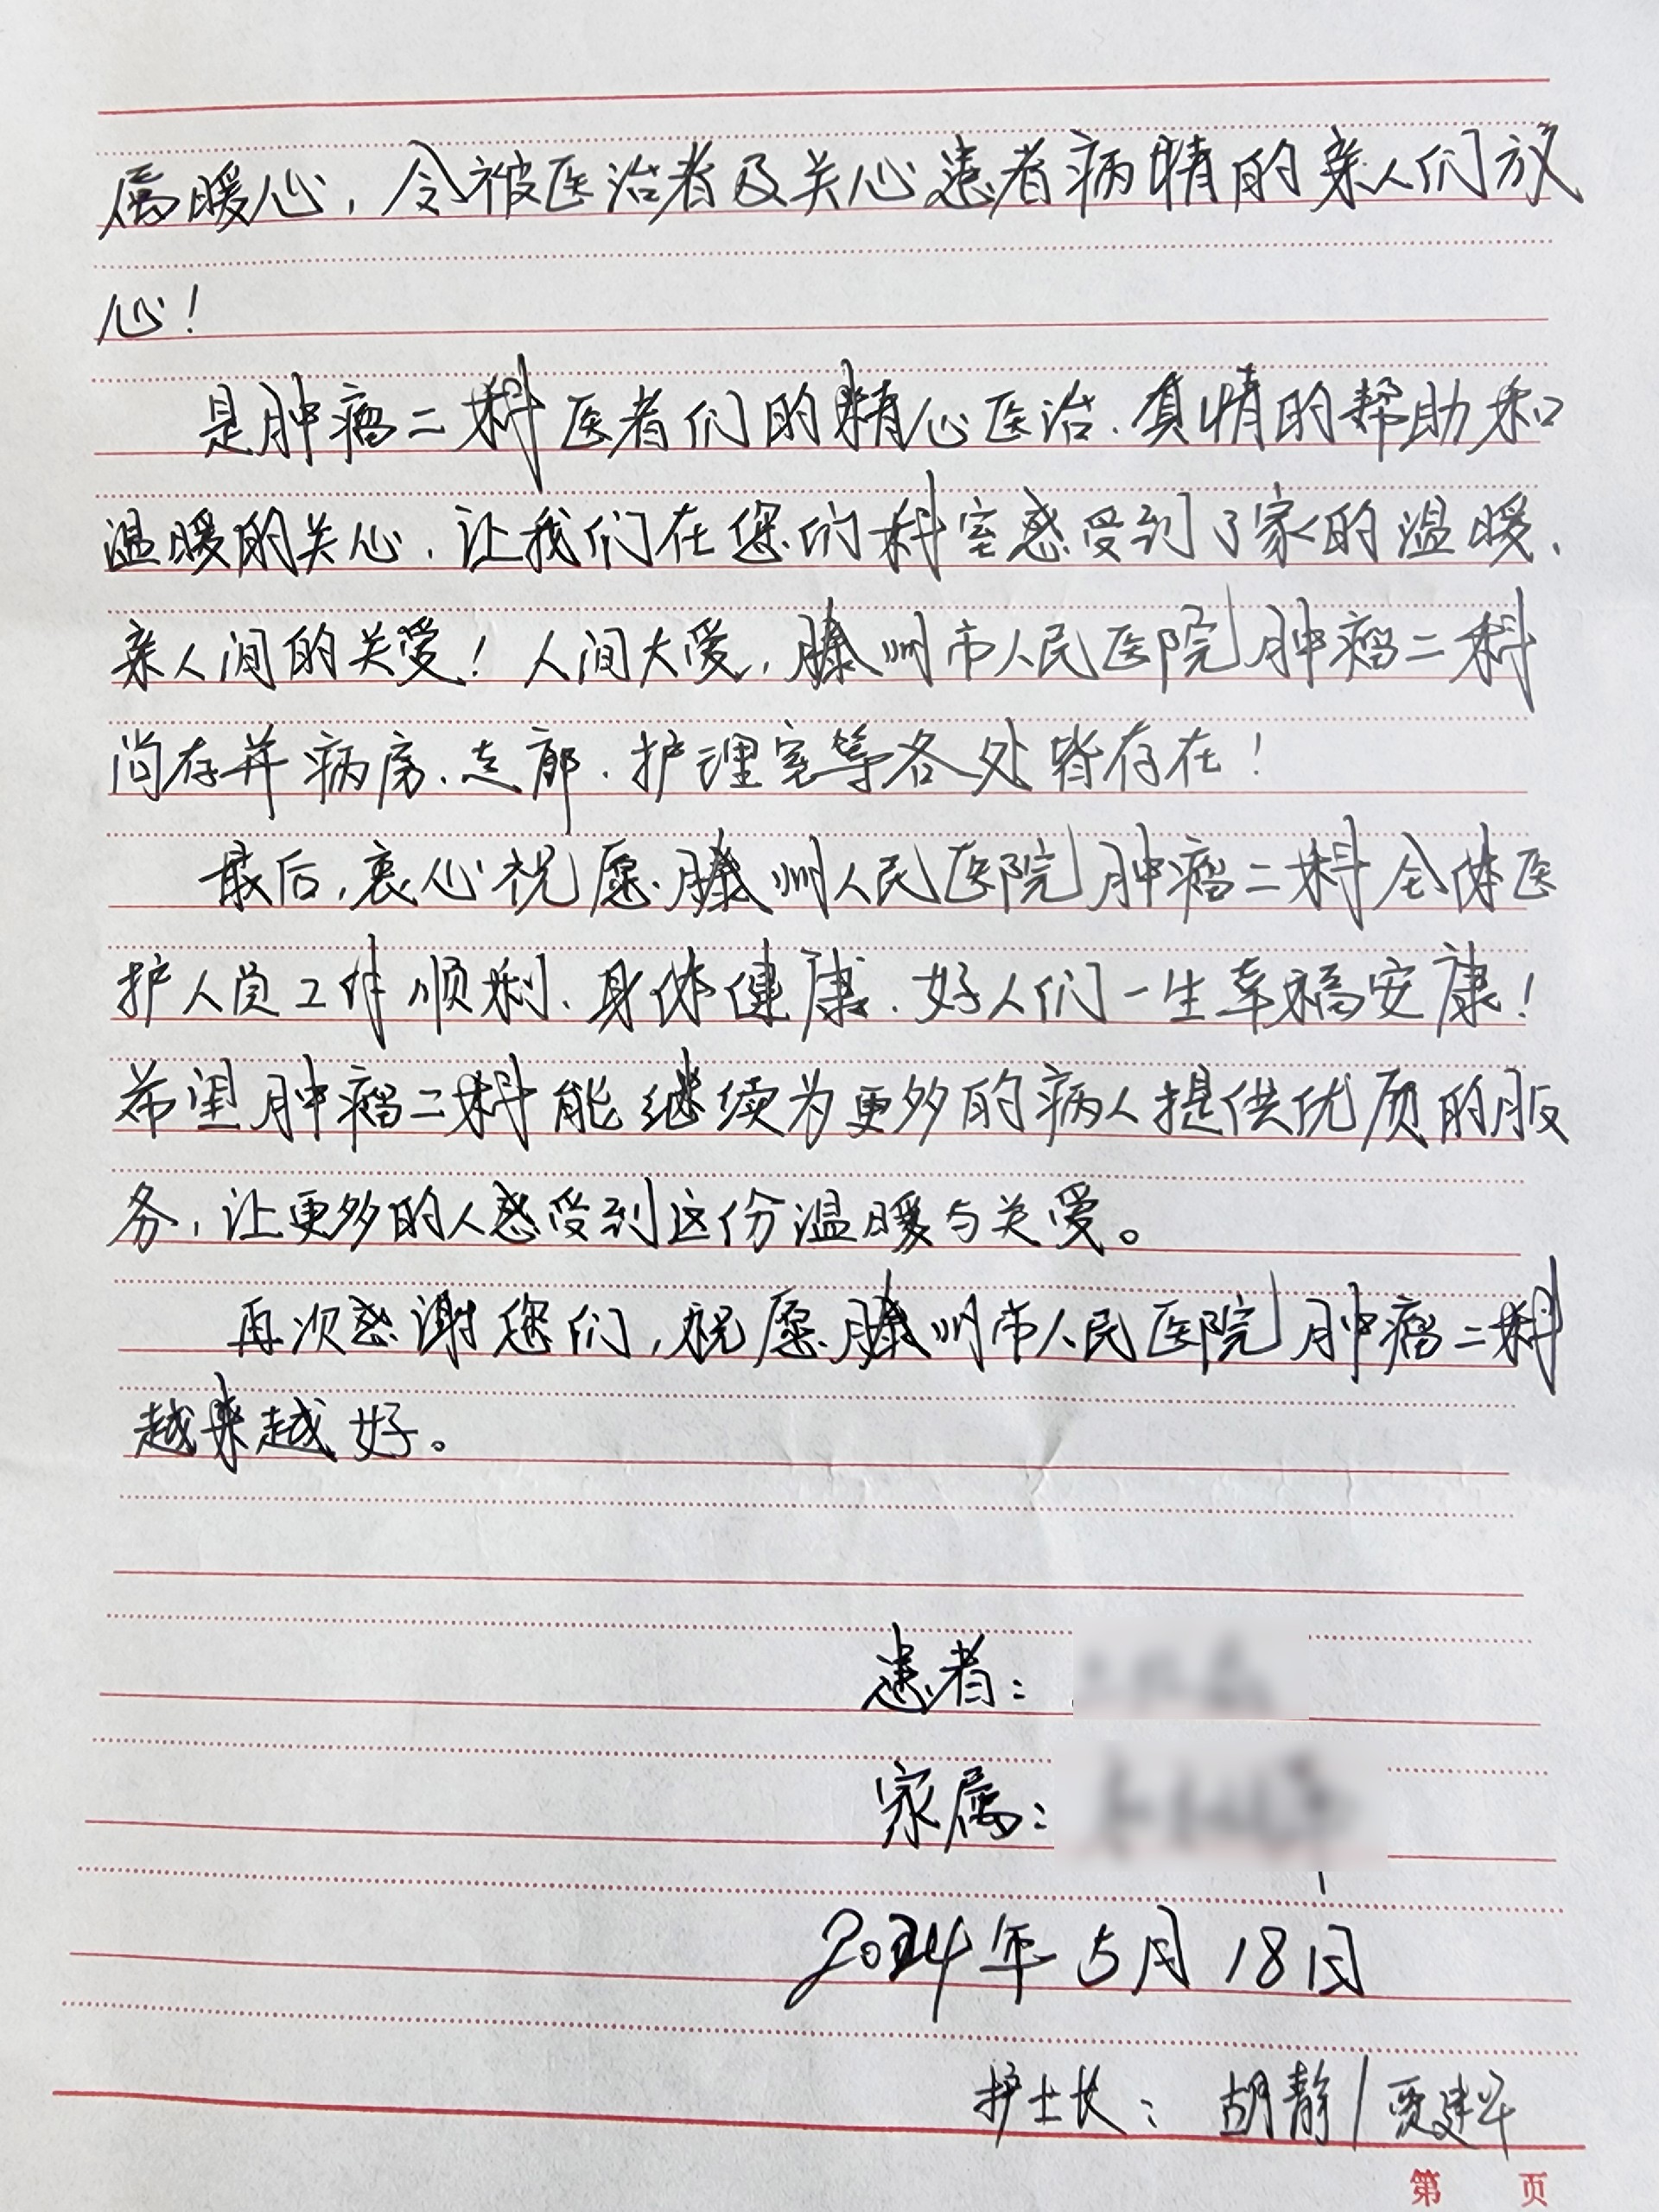 属暖心，令被医治者及关心患者病情的亲人们放
心！
是肿瘤二科医者们的精心医治、真情的帮助和
温暖的关心，让我们在您们科室感受到了家的温暖、
亲人间的关爱！人间大爱，滕州市人民医院肿瘤二科
尚存并病房、走廊、护理室等各处皆存在！
最后，衷心祝愿滕州人民医院肿瘤二科全体医
护人员工作顺利、身体健康、好人们一生幸福安康！
希望肿瘤二科能继续为更多的病人提供优质的服
务，让更多的人感受到这份温暖与关爱。
再次感谢您们，祝愿滕州市人民医院肿瘤二科
越来越好。
患者：
家属：
2024年5月18日
护士长：胡静/贾建
第 页